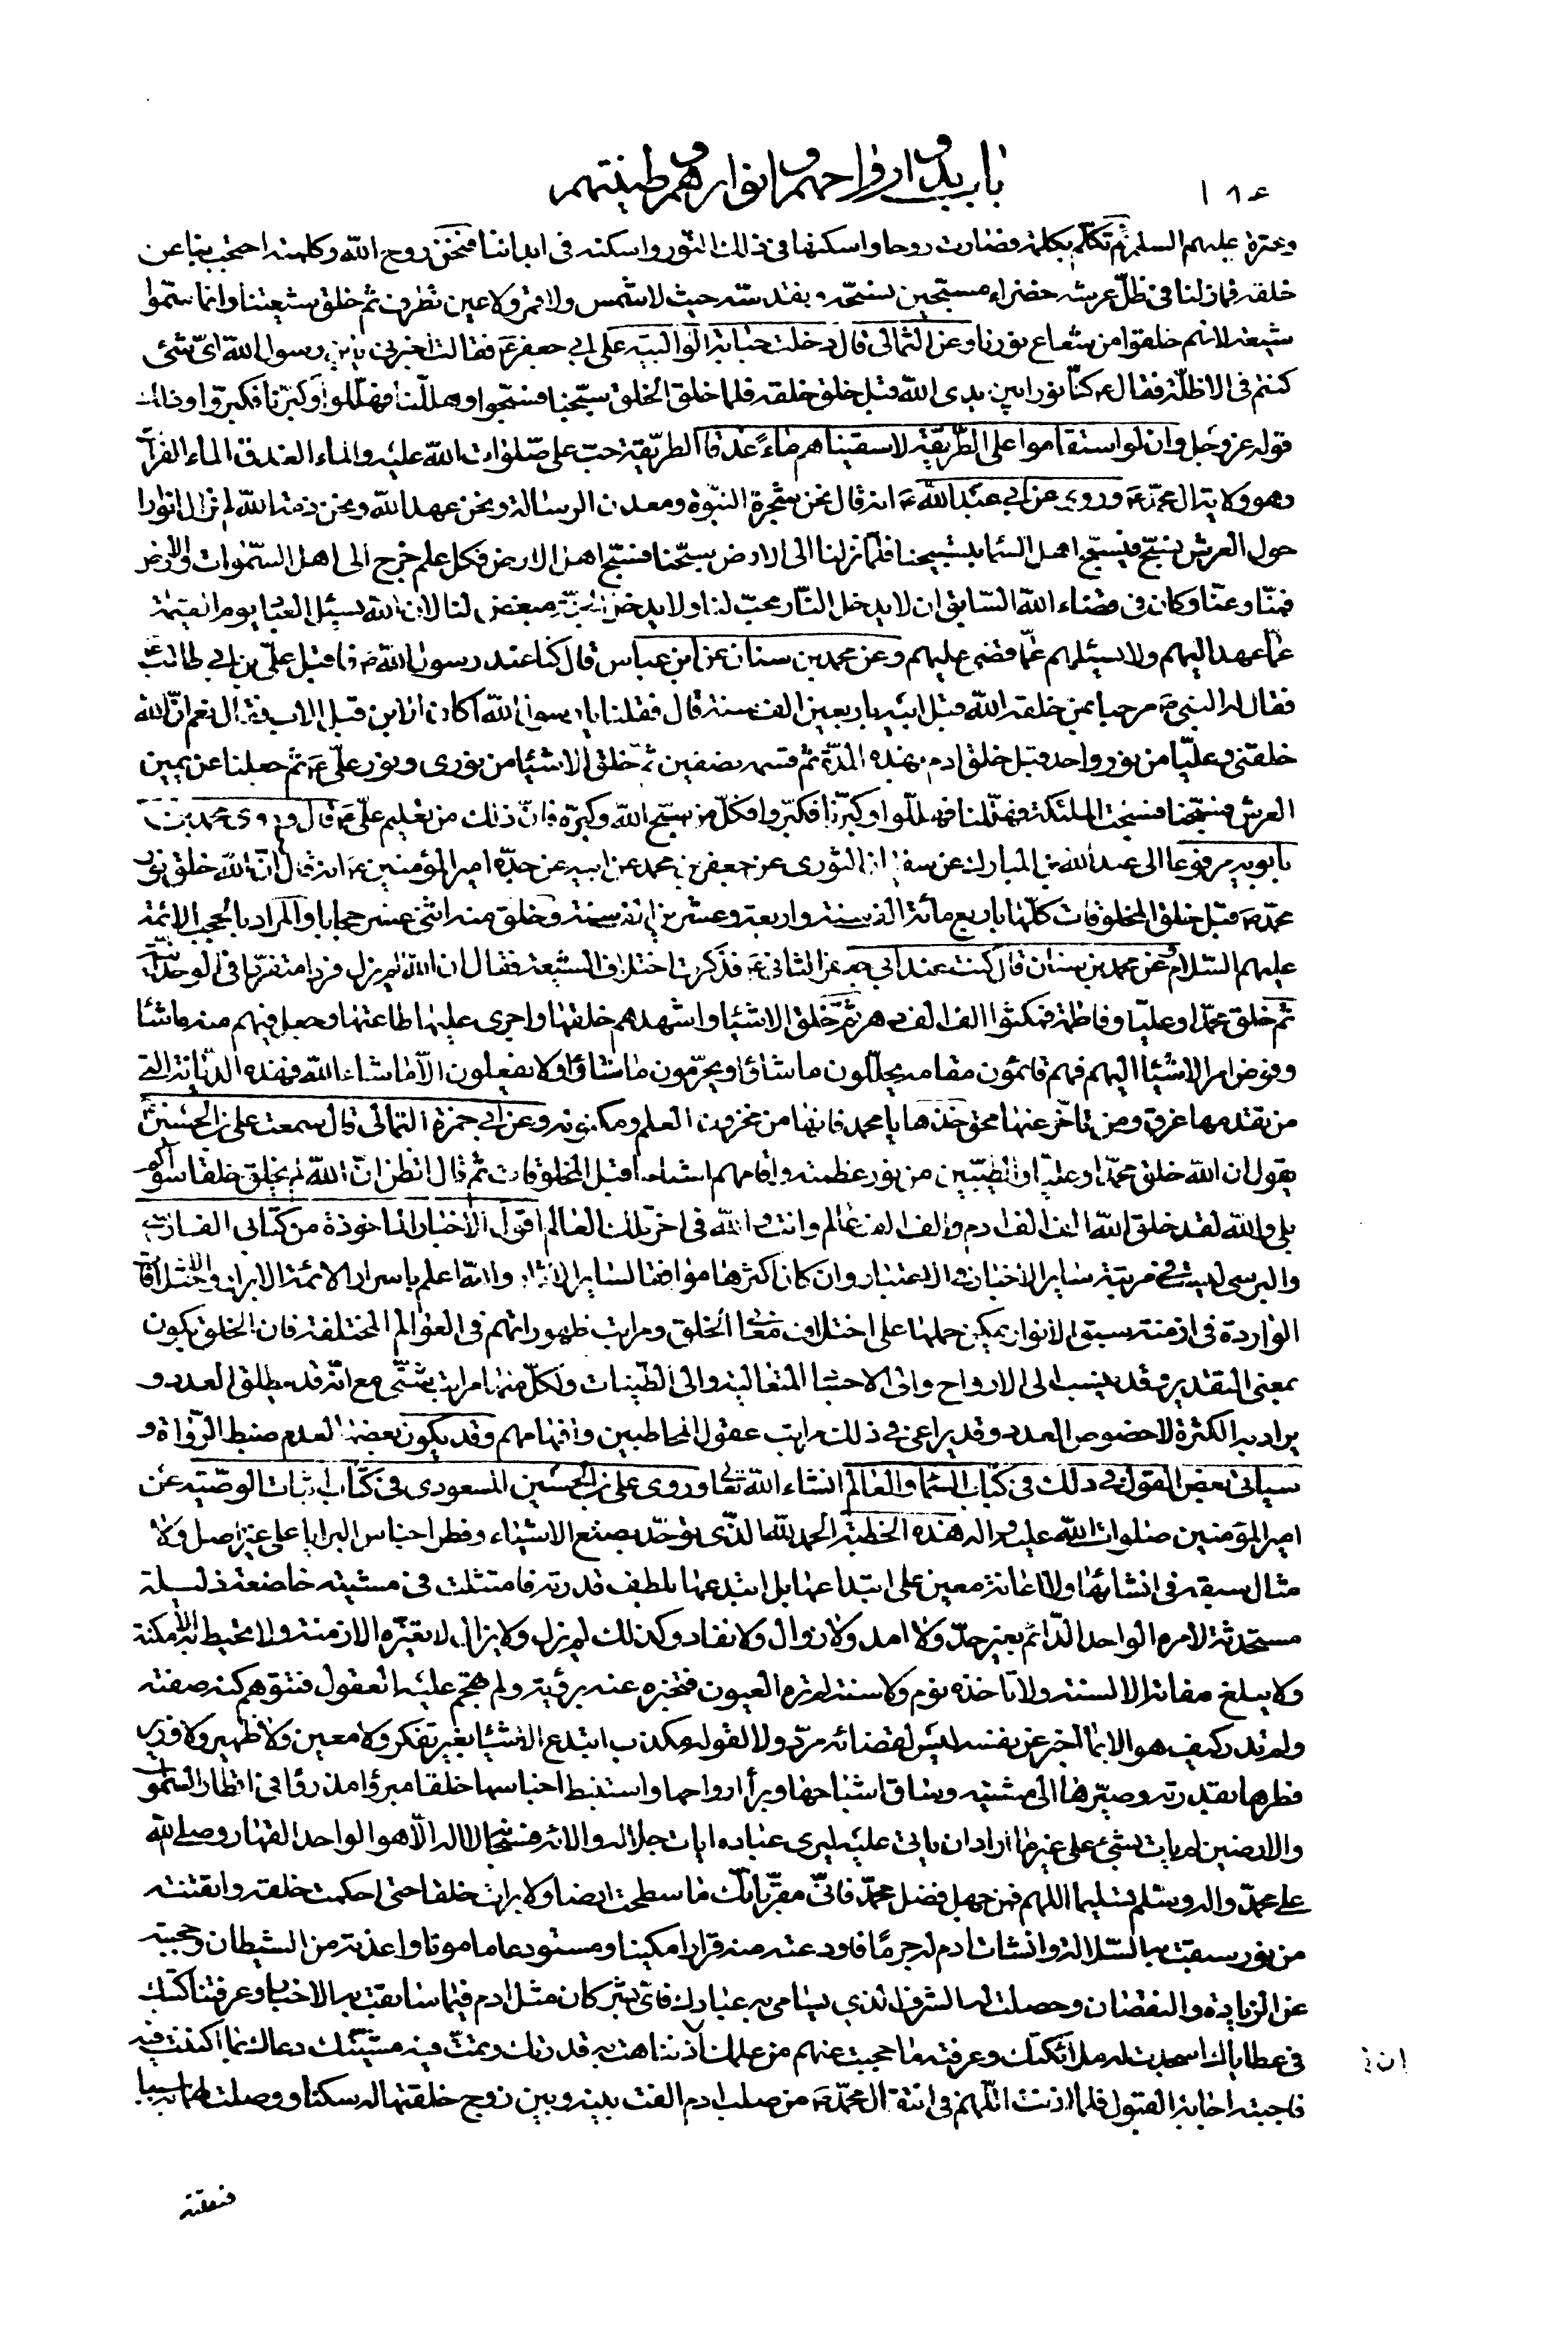 باب بدو ارواحهم و انوارهم و طينتهم
١٨٤
وعترة عليهم السلم ثم تكلم بكلمة فصارت روحا واسكنها فى ذلك النور واسكنه فى ابداننا فنحن روح الله وكلمته احتجب بنا عن
خلقه فما زلنا فى ظلّ عرشه خضراء مسبحين نسبّحه ونقدسه حيث لا شمس ولا قمر ولا عين تطرف ثم خلق شيعتنا وانما سمّوا
شيعة لانهم خلقوا من شعاع نورنا وعن الثمالى قال دخلت حبابة الوالبية على ابي جعفر ع فقالت اخبرنى يابن رسول الله اىّ شئ
كنتم فى الاظلّة فقال ع كنّا نورا بين يدى الله قبل خلق خلقه فلما خلق الخلق سبّحنا فسبّحوا وهللنا فهلّلوا وكبّرنا فكبروا وذلك
قوله عز وجل وان لو استقاموا على الطّريقة لاسقيناهم ماء غدقا الطريقة حبّ على صلوات الله عليه والماء الغدق الماء الفرات
وهو ولاية ال محمّد ع وروى عن ابي عبد الله ع انه قال نحن شجرة النبّوة ومعدن الرسالة ونحن عهد الله ونحن ذمة الله لم نزل انوارا
حول العرش نسبّح فيسبّح اهل السّما بتسبيحنا فلما نزلنا الى الارض سبّحنا فسبّح اهل الارض فكل علم خرج الى اهل السّموات والارض
فمنّا وعنّا وكان فى قضاء الله السّابق ان لا يدخل النّار محبّ لنا ولا يدخل الجنّة مبغض لنا لان الله يسئل العباد يوم القيمة
عمّا عهد اليهم ولا يسئلهم عمّا قضى عليهم وعن محمد بن سنان عن ابن عباس قال كنا عند رسول الله ص فاقبل علىّ بن ابي طالب ع
فقال له النبى ص مرحبا بمن خلقه الله قبل ابيه باربعين الف سنة قال فقلنا يا رسول الله اكان الابن قبل الاب فقال نعم انّ الله
خلقنى وعليّا من نور واحد قبل خلق ادم بهذه المدّة ثم قسمه نصفين ثم خلق الاشيا من نورى ونور علىّ ع ثم جعلنا عن يمين
العرش فسبّحنا فسبحت الملئكة فهلّلنا فهللوا وكبّرنا فكبّروا فكلّ من سبّح الله وكبّره فانّ ذلك من تعليم علىّ ع قال وروى محمد بن
بابويه مرفوعا الى عبد الله بن المبارك عن سفيان الثورى عن جعفر بن محمد عن ابيه عن جدّه امير المؤمنين ع انه قال انّ الله خلق نور
محمّد ص قبل خلق المخلوقات كلّها باربع مائة الف سنة واربعة وعشرين الف سنة وخلق منه اثنى عشر حجابا والمراد بالحجب الائمة
عليهم السّلام وعن محمد بن سنان قال كنت عند ابي جعفر الثانى ع فذكرت اختلاف الشيعة فقال ان الله لم يزل فردا متفرّدا فى الوحدانية
ثم خلق محمّدا وعليّا وفاطمة فمكثوا الف الف دهر ثم خلق الاشيا واشهدهم خلقها واجرى عليها طاعتهم وجعل فيهم منه ما شا
وفوض امر الاشيا اليهم فهم قائمون مقامه يحلّلون ما شاؤا ويحرّمون ما شاؤا ولا يفعلون الّا ما شاء الله فهذه الدّيانة التى
من تقدمها غرق ومن تأخّر عنها محق خذها يا محمد فانها من مخزون العلم ومكنونه وعن ابي حمزة الثمالى قال سمعت على بن الحسين ع
يقول ان الله خلق محمّدا وعليّا والطّيبين من نور عظمته واقامهم اشباحا قبل المخلوقات ثم قال اتظن انّ الله لم يخلق خلقا سواكم
بلى والله لقد خلق الله الف الف ادم والف الف عالم وانت والله فى اخر تلك العوالم اقول الاخبار الماخوذة من كتابى الفارسى
والبرسى ليست فى مرتبة ساير الاخبار فى الاعتبار وان كان اكثرها موافقا لساير الاثار والله اعلم باسرار الائمة الابرار والاختلافات
الواردة فى ازمنة سبق الانوار يمكن حملها على اختلاف معانى الخلق ومراتب ظهوراتهم فى العوالم المختلفة فان الخلق يكون
بمعنى التقدير وقد ينسب الى الارواح والى الاجسا المثالية والى الطّينات ولكلّ منها مراتب شتّى مع انّه قد يطلق العدد و
يراد به الكثرة لا خصوص العدد وقد يراعى فى ذلك مراتب عقول المخاطبين وافهامهم وقد يكون بعضها لعدم ضبط الرّواة و
سياتى بعض القول فى ذلك فى كتاب السّما والعالم انشاء الله تعا وروى على بن الحسين المسعودى فى كتاب اثبات الوصّية عن
امير المؤمنين صلوات الله عليه واله هذه الخطبة الحمد لله الذّى توحّد بصنع الاشياء وفطر اجناس البرايا على غير اصل ولا
مثال سبقه فى انشائها ولا اعانة معين على ابتداعها بل ابتدعها بلطف قدرته فامتثلت فى مشيته خاضعة ذليلة
مستحدثة لامره الواحد الدّائم بغير حدّ ولا امد ولا زوال ولا نفاد وكذلك لم يزل ولا يزال لا تغيّره الازمنة ولا تحيط به الامكنة
ولا يبلغ مقامه الالسنة ولا تاخذه نوم ولا سنة لم تره العيون فتخبر عنه برؤية ولم تهجم عليه العقول فتتوهم كنه صفته
ولم تدر كيف هو الا بما اخبر عن نفسه ليس لقضائه مردّ ولا لقوله مكذب ابتدع الاشيا بغير تفكر ولا معين ولا ظهير ولا وزير
فطرها بقدرته وصيّرها الى مشيته وساق اشباحها وبرأ ارواحها واستنبط اجناسها خلقا مبروا مذروا فى اقطار السّموات
والارضين لم يات بشئ على غير ما اراد ان ياتى عليه ليرى عباده ايات جلاله والائه فسبحانه لا اله الّا هو الواحد القهّار وصلى الله
على محمّد واله وسلّم تسليما اللهم فمن جهل فضل محمّد فانّى مقرّ بانّك ما سطحت ارضا ولا برات خلقا حتى احكمت خلقه واتقنته
من نور سبقت به السّلالة وانشات ادم له جرمًا فاودعته منه قرارا مكينا ومستودعا مامونا واعذته من الشيطان وحجبته
عن الزيادة والنقصان وحصلت له الشرف الذى يسامى به عبادك فاىّ بشر كان مثل ادم فيما سابقت به الاخبار وعرفتنا كتبك
فى عطاياك اسجدت له ملائكتك وعرفته ما حجبت عنهم من علمك اذ تناهت به قدرتك وتمّت فيه مشيّتك دعاك بما اكننت فيه
ان ذ
فاجبته اجابة القبول فلما اذنت اللّهم فى انتقال محمّد ص من صلب ادم الفت بينه وبين زوج خلقتها له سكنا ووصلت لهما به سببا
فنقلته